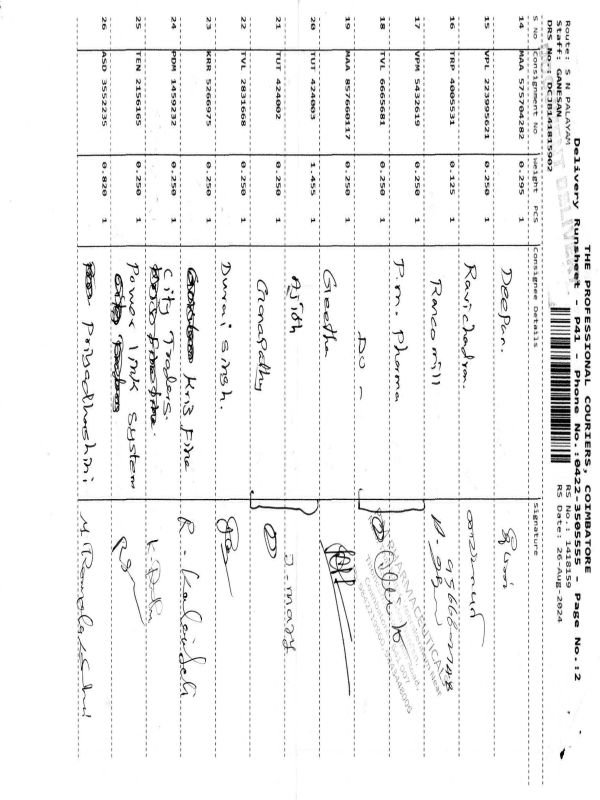 THE PROFESSIONAL COURIERS, COIMBATORE
Delivery Runsheet - P41 - Phone No.:0422-3505555 - Page No.:2
Route: S N PALAYAM
RS No.: 1418159
Staff: GANESAN
RS Date: 26-Aug-2024
DRS No.: DCJB141815902
S No Consignment No Weight PCS Consignee Details Signature
14 MAA 575704282 0.295 1 Deepan.
15 VPL 223995621 0.250 1 Ravichadran
16 TRP 4005531 0.125 1 Ramco mill
17 VPM 5432619 0.250 1 P.m. Pharma
18 TVL 6665681 0.250 1 DO -
19 MAA 857660117 0.250 1 Geetha
20 TUT 424003 1.455 1 Ajith J-mary
21 TUT 424002 0.250 1 Ganapathy
22 TVL 2831668 0.250 1 Durai singh.
23 KRR 5266975 0.250 1 Kris Fine
24 PDM 1459232 0.250 1 City Traders.
25 TEN 2156165 0.250 1 Power link System
26 ASD 3552235 0.820 1 Priyadharshini